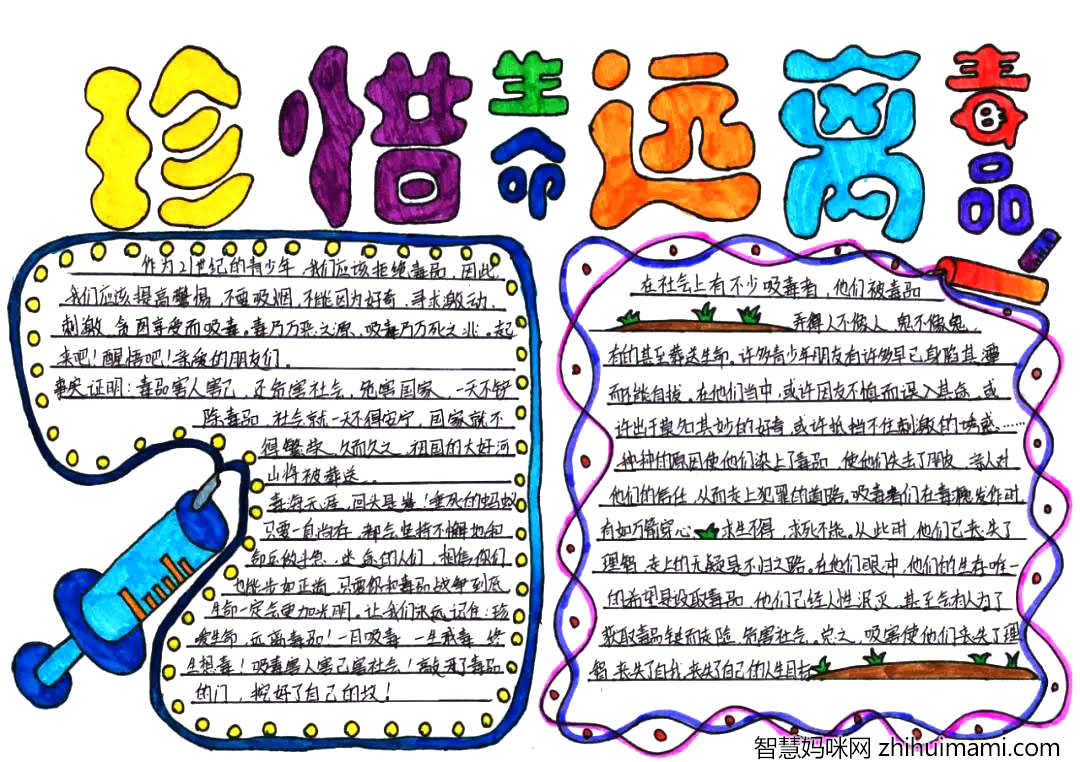 珍惜生命远离毒品
作为21世纪的青少年，我们应该拒绝毒品，因此，
我们应该提高警惕，不要吸烟，不能因为好奇，寻求激动、
刺激、贪图享受而吸毒。毒乃万恶之源、吸毒乃万死之兆。起
来吧！醒悟吧！亲爱的朋友们。
事实证明：毒品害人害己，还危害社会，危害国家，一天不铲
除毒品，社会就一天不得安宁，国家就不
得繁荣，久而久之，祖国的大好河
山将被葬送。
毒海无涯，回头是岸！垂死的蚂蚁
只要一息尚存，都会坚持不懈地和
命运做斗争，迷途的人们，相信你们
也能步如正道，只要你和毒品战争到底
生命一定会更加光明。让我们永远记住：珍
爱生命，远离毒品！一日吸毒，一生戒毒，终
生想毒！吸毒害人害己害社会！敲开了毒品
的门，挖好了自己的坟！
在社会上有不少吸毒者，他们被毒品
弄得人不像人，鬼不像鬼，
有的甚至葬送生命。许多青少年朋友有许多早已身陷其
而不能自拔，在他们当中，或许因友不慎而误入其途，或
许出于莫名其妙的好奇，或许抵挡不住刺激的诱惑……
种种的原因使他们染上了毒品，使他们失去了朋友，亲人对
他们的信任，从而走上犯罪的道路，吸毒者们在毒瘾发作时，
有如万箭穿心，求生不得，求死不能。从此时，他们已丧失了
理智，走上的无疑是不归之路。在他们眼中，他们的生存唯一
的希望是设取毒品，他们已经人性泯灭，甚至会有人为了
获取毒品铤而走险，伤害社会。总之，吸害使他们丧失了理
智，丧失了自我，丧失了自己的人生目标
智慧妈咪网 zhihuimami.com